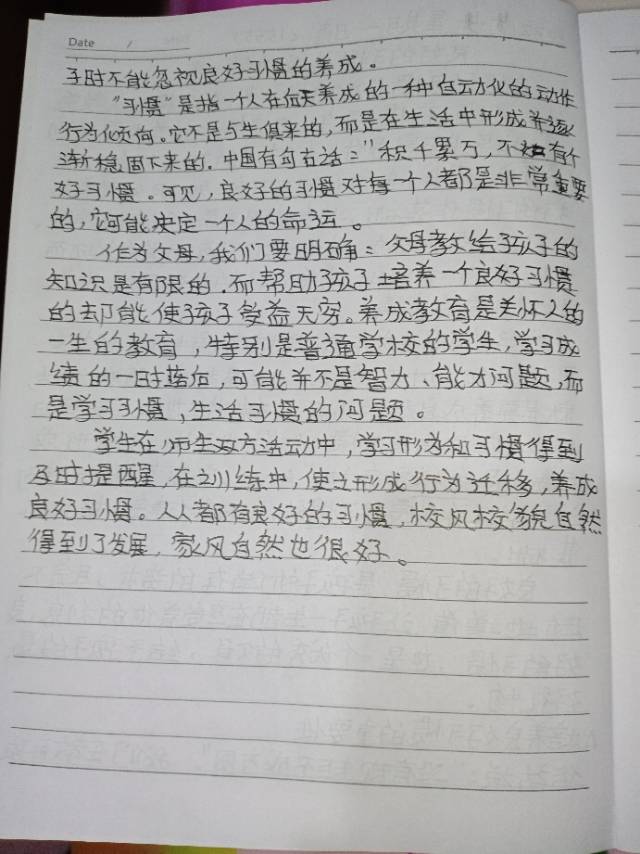 Date /
子时不能忽视良好习惯的养成。
"习惯"是指一个人在后天养成的一种自动化的动作
行为化倾向。它不是与生俱来的，而是在生活中形成并逐
渐稳固下来的。中国有句古话："积千累万，不如有个
好习惯。可见，良好的习惯对每一个人都是非常重要
的，它可能决定一个人的命运。
作为父母，我们要明确：父母教给孩子的
知识是有限的，而帮助孩子培养一个良好习惯
的却能使孩子受益无穷。养成教育是关怀人的
一生的教育，特别是普通学校的学生，学习成
绩的一时落后，可能并不是智力、能力问题，而
是学习习惯，生活习惯的问题。
学生在师生双方活动中，学习形为和习惯得到
及时提醒，在训练中，使之形成行为迁移，养成
良好习惯。人人都有良好的习惯，校风校貌自然
得到了发展，家风自然也很好。